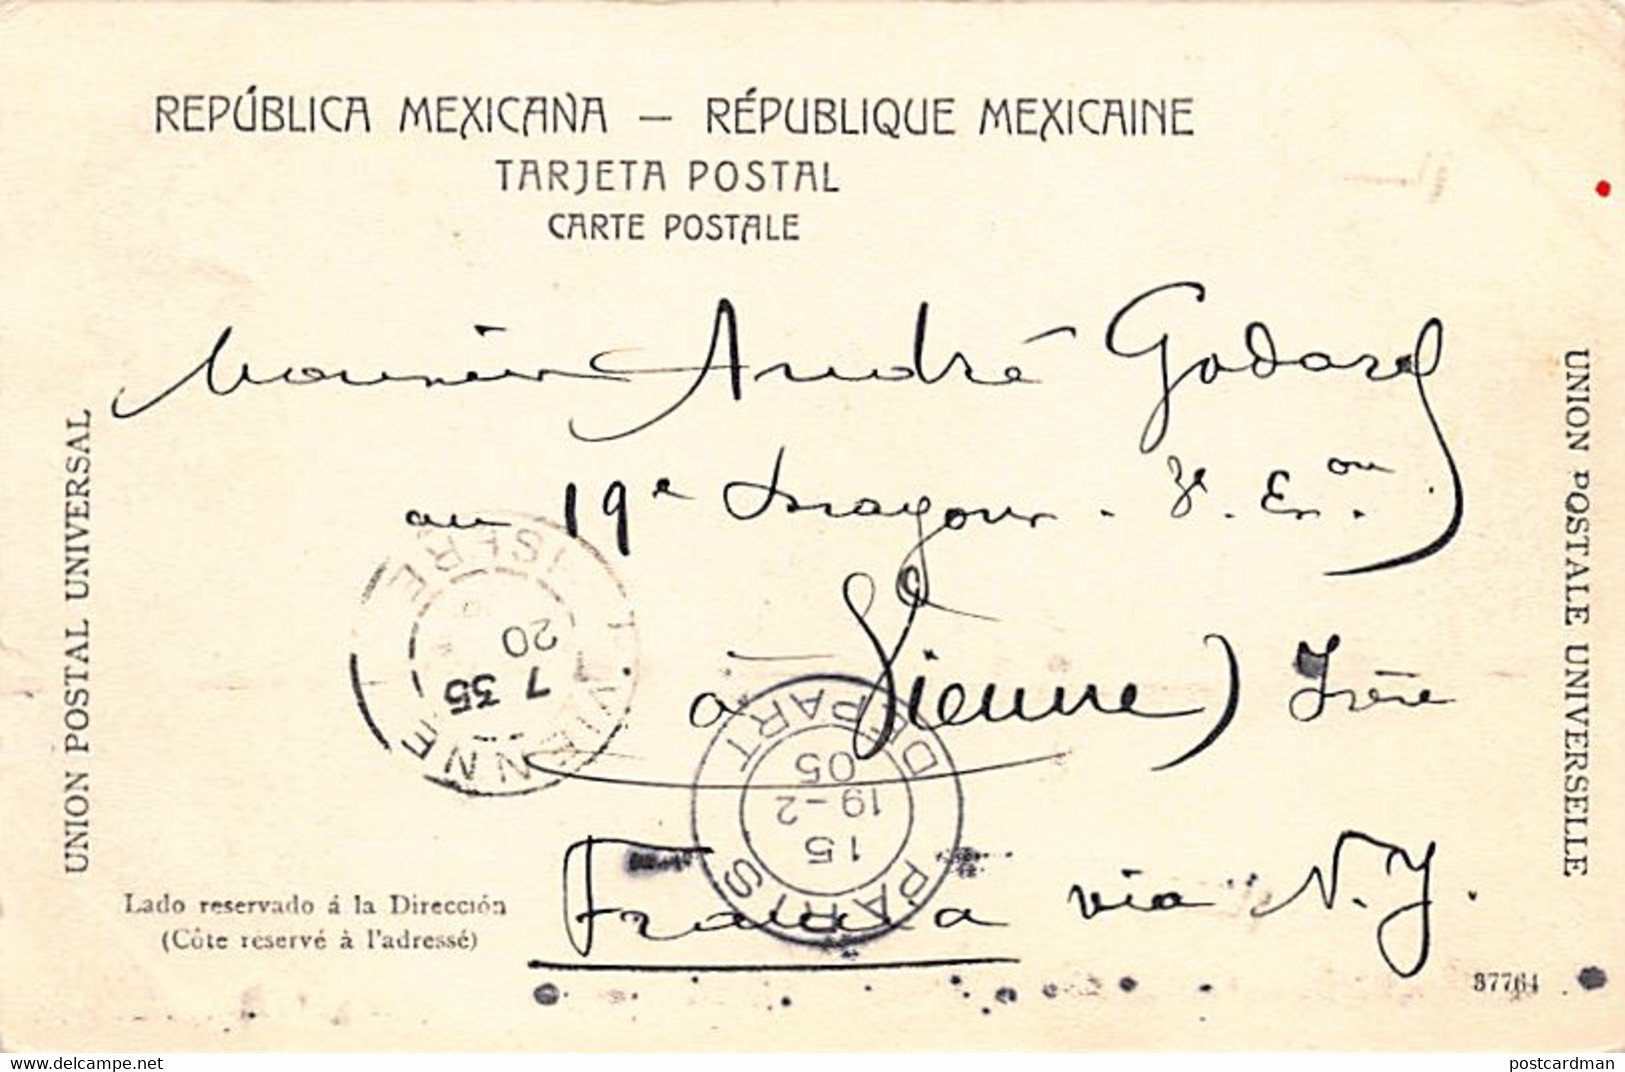 REPÚBLICA MEXICANA — RÉPUBLIQUE MEXICAINE
TARJETA POSTAL
CARTE POSTALE
UNION POSTAL UNIVERSAL
UNION POSTALE UNIVERSELLE
Monsieur André Godard
au 19e dragons - 3e Eon.
à Vienne) Isère
Francia via N.Y.
VIENNE
ISERE
7 35
20
PARIS
DEPART
15
19-2
05
Lado reservado á la Dirección
(Côte reservé à l'adressé)
37764
delcampe.net
postcardman